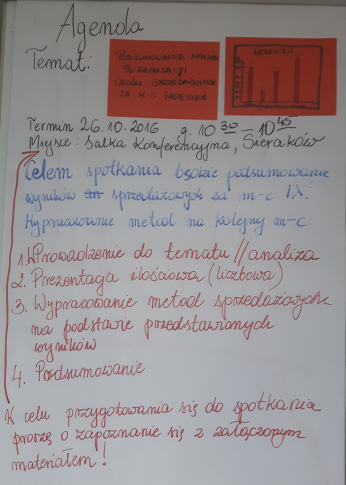 Agenda
Temat:
PODSUMOWANIE
REALIZACJI
CELÓW SPRZEDAŻOWYCH
ZA M-C WRZESIEŃ
WRZESIEŃ
Termin 26.10.2016 g. 10 30 – 10 45
Miejsce: Salka Konferencyjna, Sieraków
Celem spotkania będzie podsumowanie
wyników sprzedażowych za m-c IX.
Wypracowanie metod na kolejny m-c
1. Wprowadzenie do tematu // analiza
2. Prezentacja ilościowa (liczbowa)
3. Wypracowanie metod sprzedażowych
na podstawie przedstawionych
wyników
4. Podsumowanie
W celu przygotowania się do spotkania
proszę o zapoznanie się z załączonym
materiałem!